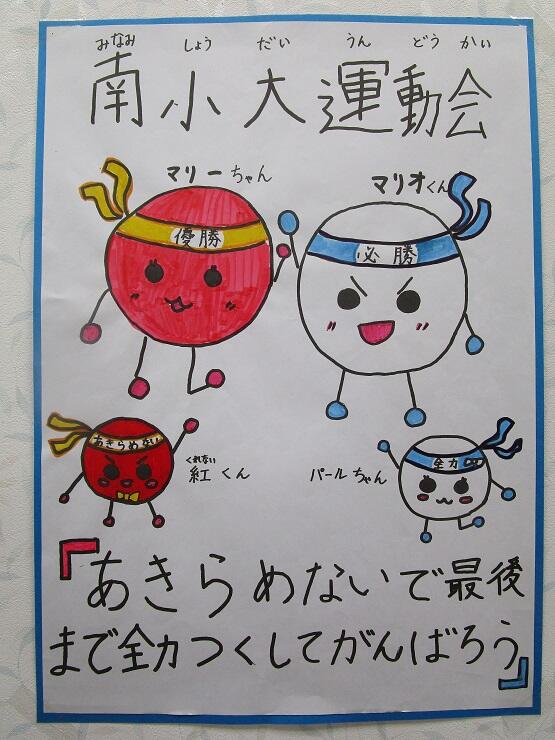 みなみ しょう だい うん どう かい
南小大運動会
マリーちゃん
マリオくん
優勝
必勝
あきらめない
全力
くれない
紅くん
パールちゃん
『あきらめないで最後
まで全力つくしてがんばろう』